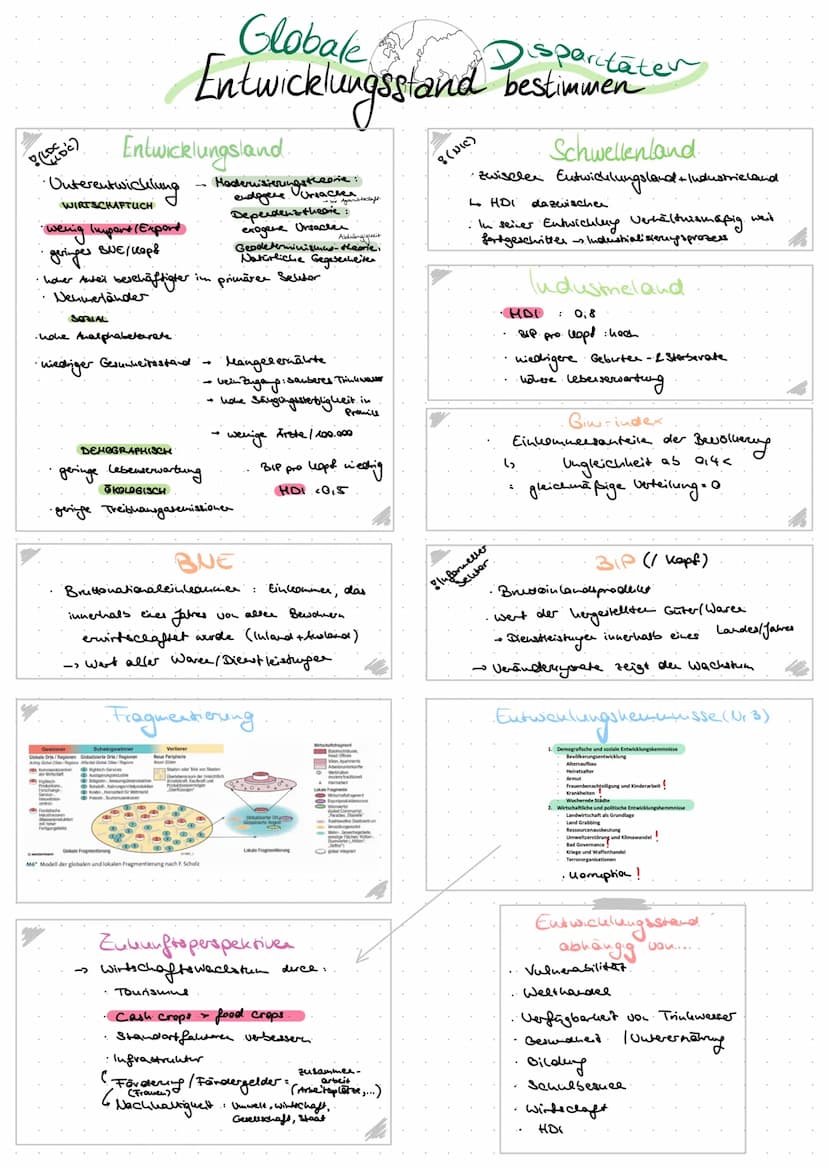 Globale Disparitäten
Entwicklungsstand bestimmen
!(LDC
LLDC)
Entwicklungsland
· Unterentwicklung → Modernisierungstheorie:
endogene Ursachen
WIRTSCHAFTLICH
Dependenztheorie:
· wenig Import/Export
exogene Ursachen
Abhängigkeit
· geringes BNE/Kopf
Geodeterminismus-theorie:
Natürliche Gegebenheiten
· hoher Anteil beschäftigter im primären Sektor
· Nehmerländer
SOZIAL
· hohe Analphabetenrate
· niedriger Gesundheitsstand → Mangelernährte
→ kein Zugang: sauberes Trinkwasser
→ hohe Säuglingssterblichkeit in
Promille
→ wenige Ärzte/100.000
DEMOGRAPHISCH
· geringe Lebenserwartung
· BIP pro Kopf niedrig
ÖKOLOGISCH
HDI <0,5
· geringe Treibhausgasemissionen
!(NIC)
Schwellenland
· zwischen Entwicklungsland + Industrieland
↳ HDI dazwischen
· In seiner Entwicklung verhältnismäßig weit
fortgeschritten → Industrialisierungsprozess
Industrieland
· HDI : 0,8
· BIP pro Kopf : hoch
· niedrigere Geburten- & Sterberate
· höhere Lebenserwartung
Gini-index
· Einkommensanteile der Bevölkerung
↳ Ungleichheit ab 0,4<
: gleichmäßige Verteilung = 0
BNE
· Bruttonationaleinkommen : Einkommen, das
innerhalb eines Jahres von allen Bewohnern
erwirtschaftet wurde (Inland + Ausland)
→ Wert aller Waren/Dienstleistungen
!Informeller
Sektor
BIP (/ Kopf)
· Bruttoinlandsprodukt
· Wert der hergestellten Güter/Waren
→ Dienstleistungen innerhalb eines Landes/Jahres
→ Veränderungsrate zeigt den Wachstum
Fragmentierung
Gewinner
Scheingewinner
Verlierer
Globale Orte / Regionen
Globalisierte Orte / Regionen
Neue Peripherie
Globale Fragmentierung
Lokale Fragmentierung
Wirtschaftsfragment
Lokale Fragmente
M6 Modell der globalen und lokalen Fragmentierung nach F. Scholz
Entwicklungshemmnisse (Nr. 3)
1. Demografische und soziale Entwicklungshemmnisse
Bevölkerungsentwicklung
Altersaufbau
Heiratsalter
Armut
Frauenbenachteiligung und Kinderarbeit !
Krankheiten !
Wuchernde Städte
2. Wirtschaftliche und politische Entwicklungshemmnisse
Landwirtschaft als Grundlage
Land Grabbing
Ressourcenausbeutung
Umweltzerstörung und Klimawandel !
Bad Governance !
Kriege und Waffenhandel
Terrororganisationen
· Korruption !
Zukunftsperspektiven
→ Wirtschaftswachstum durch :
· Tourismus
· Cash crops > food crops
· Standortfaktoren verbessern
· Infrastruktur
Förderung / Fördergelder : zusammen-
arbeit
(Frauen)
(Arbeitsplätze,...)
Nachhaltigkeit : Umwelt, Wirtschaft,
Gesellschaft, Staat
Entwicklungsstand
abhängig von....
· Vulnerabilität
· Welthandel
· Verfügbarkeit von Trinkwasser
· Gesundheit / Unterernährung
· Bildung
· Schulbesuch
· Wirtschaft
· HDI